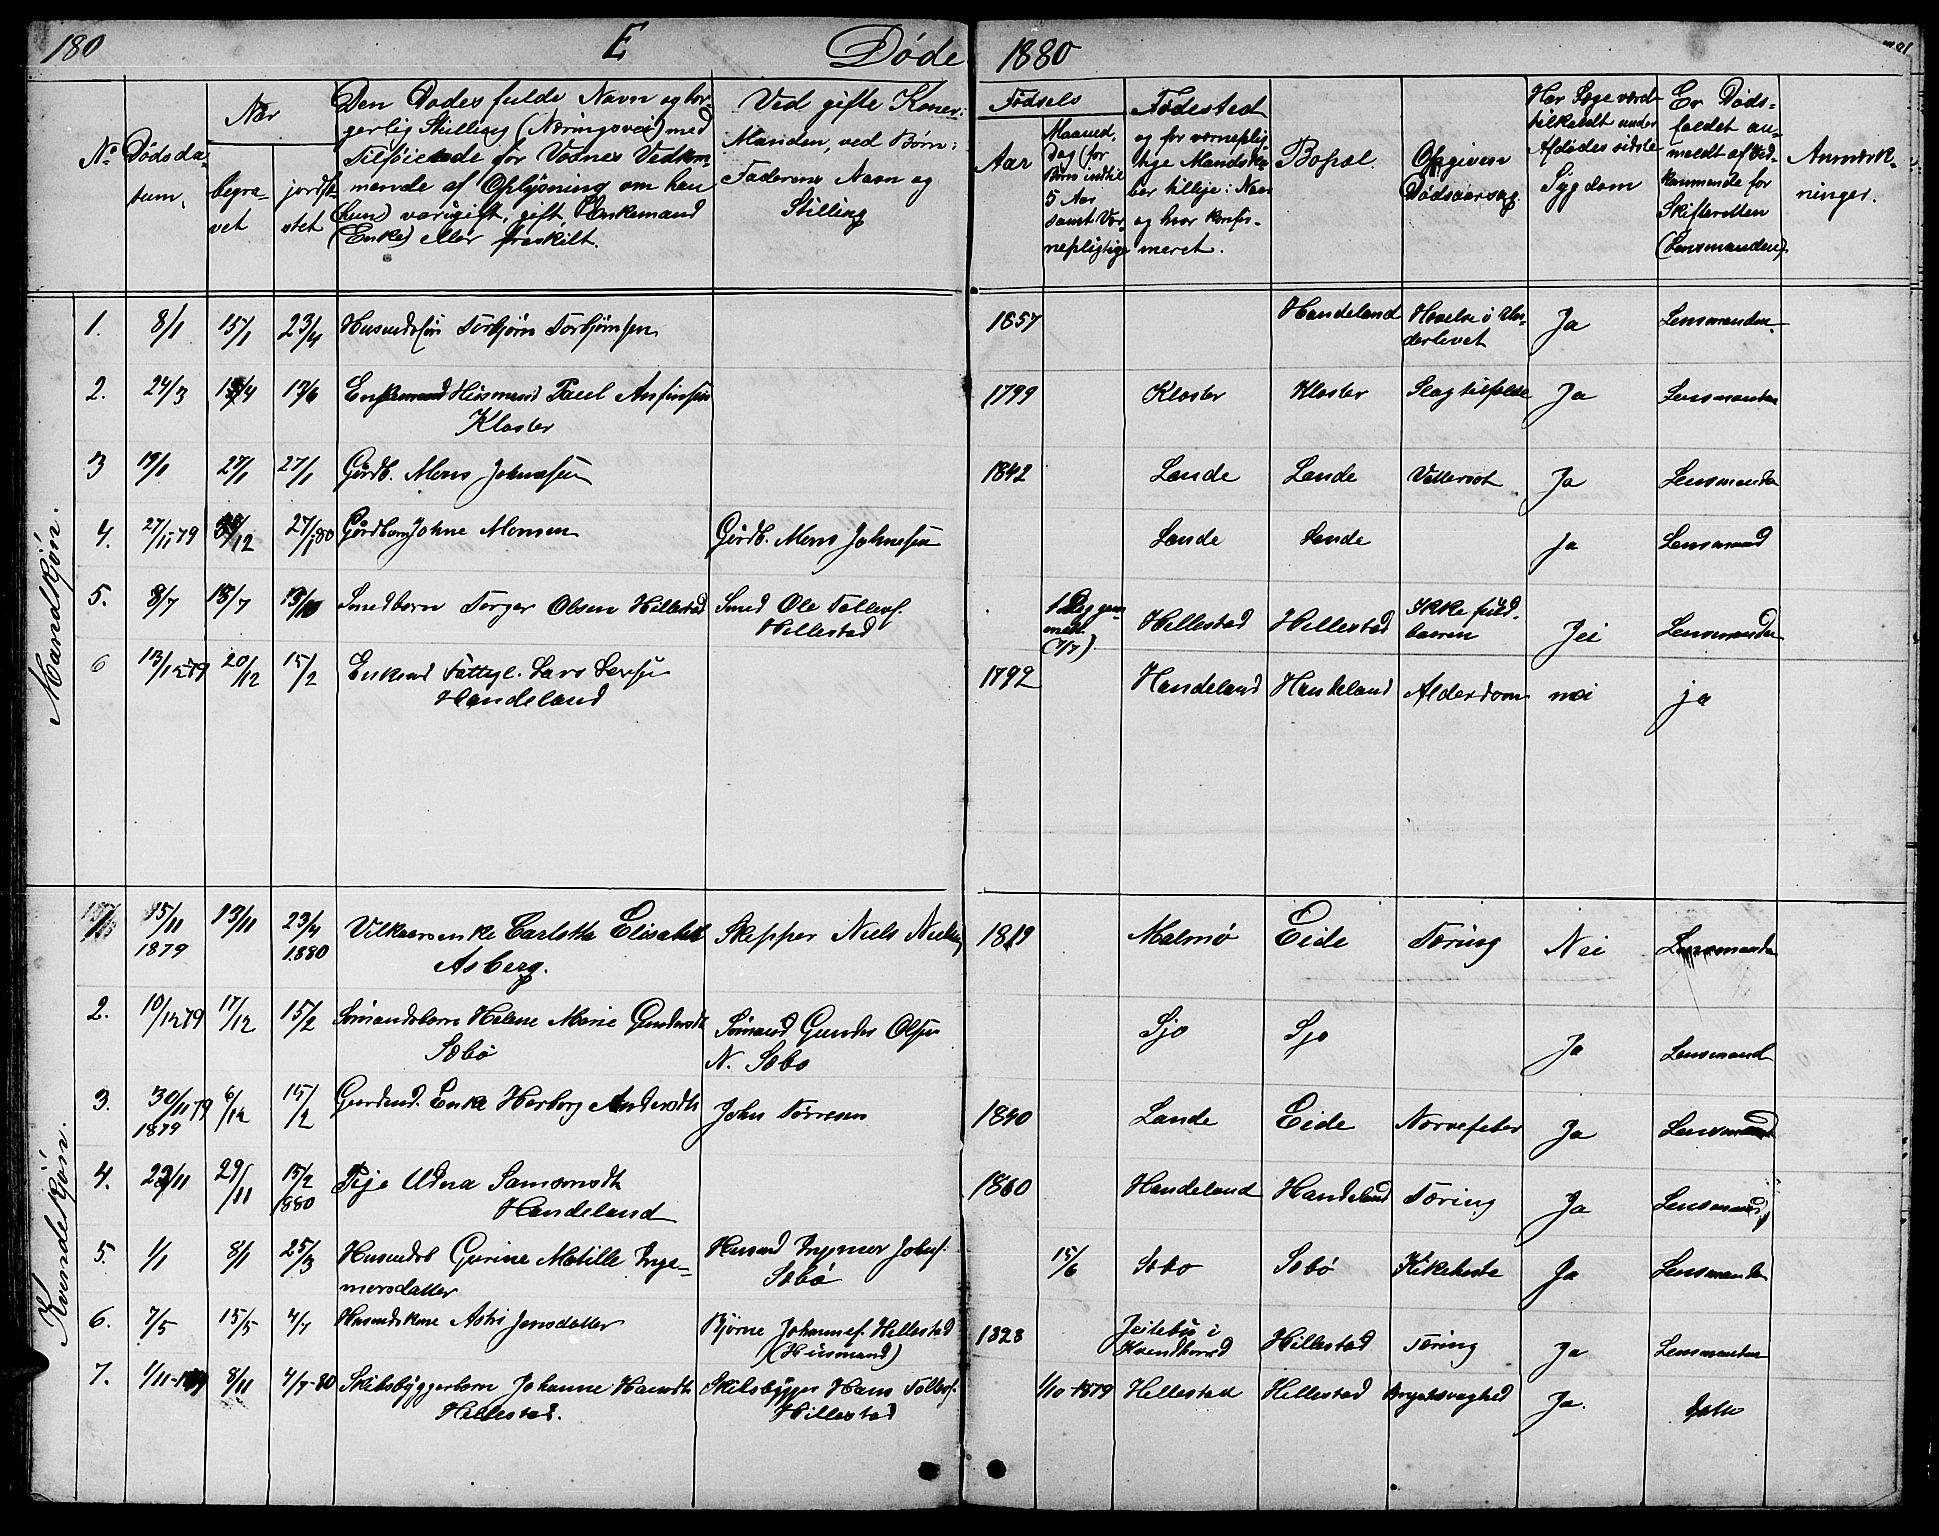 180 E Døde 1880
No
Dødsda-
tum.
Naar
begra-
vet
jordfæ-
stet
Den Dødes fulde Navn og bor-
gerlig Stilling (Næringsvei) med
Tilføiende for Voxnes Vedkom-
mende af Oplysning om han
(hun) var ugift, gift, Enkemand
(Enke) eller fraskilt.
Ved gifte Koner:
Manden, ved Børn:
Faderens Navn og
Stilling
Fødsels
Aar
Maaned,
Dag (for
Børn indtil
5 Aar
samt Vær-
nepligtige
Fødested
og for værneplig-
tige Mandska-
ber tillige: Naar
og hvor konfir-
meret.
Bopæl
Opgiven
Dødsaarsag.
Har Læge været
tilkaldt under
Afdødes sidste
Sygdom
Er Døds-
faldet an-
meldt af Ved-
kommende for
Skifteretten
(Lensmanden)
Anmærk-
ninger.
Mandkjøn.
1. 8/1 15/1 23/4 Husmdssøn Torbjørn Torbjørnsen 1857 Handeland Hævelse i Un-
derlivet Ja Lensmanden.
2. 24/3 /4 13/6 Enkemand Husmand Paul Anfinsen
Kloster 1799 Kloster Kloster Slagtilfælde Ja Lensmanden
3 19/1 27/1 27/1 Gårdb. Mons Johnsen 1842 Lande Lande Vattersot Ja Lensmanden
4. 27/11-79 /12 27/1 80 Gårdbarn Johne Monsen Gårdb. Mons Johnesen Lande Lande Ja Lensmand
5. 8/7 15/7 Smedbarn Torger Olsen Hillestad Smed Ole Tollevs.
Hillestad 1 Dag gam-
mel
(7/7). Hillestad Hillestad Ikke fuld-
baaren Jei Lensmanden
6 13/12-79 20/12 15/2 Enkemd Fattigl. Lars Larsen
Handeland 1792 Handeland Handeland Alderdom nei ja
Kvindekjøn.
15/11
1879 13/11 23/4
1880 Vilkaarsenke Carlotta Elisabet
Asberg. Skipper Niels Nielsen 1819 Malmø Eide Tæring Nei Lensmanden
2. 10/12 79 17/12 15/2 Sømandsbarn Helene Marie Gundersdt
Sæbø Sømand Gunder Olsen
N. Sæbø Sjo Sjo Ja Lensmand
3. 30/11 79
1879 6/12 15/2 Gårdmd. Enke Herborg Andersdt John Torresen 1840 Lande Eide Nervefeber Ja Lensmand
4. 22/11 29/11 15/2
1880 Pige Udna Samsonsdt
Handeland 1860 Handeland Handeland Tæring Ja Lensmand
5. 1/1 8/1 25/3 Husmdsb Gurine Matille Inge-
morsdatter Husmd Ingemor Johns.
Sæbø 15/6 Sæbo Sæbø Kikehoste Ja Lensmanden
6. 7/5 15/5 4/7 Husmdskone Astri Jensdatter Bjørne Johannes. Hillestad
(Husmand) 1828 Jeilebu i
Kvindherred Hillestad Tæring Ja Lensmanden
7. 1/11-1879 8/11 4/7-80 Skibsbyggerbarn Johanne Hansdt
Hillestad. Skibsbygger Hans Tollevs.
Hillestad 1/10-1879 Hillestad Hillestad Brystsvaghed Ja. Ditto